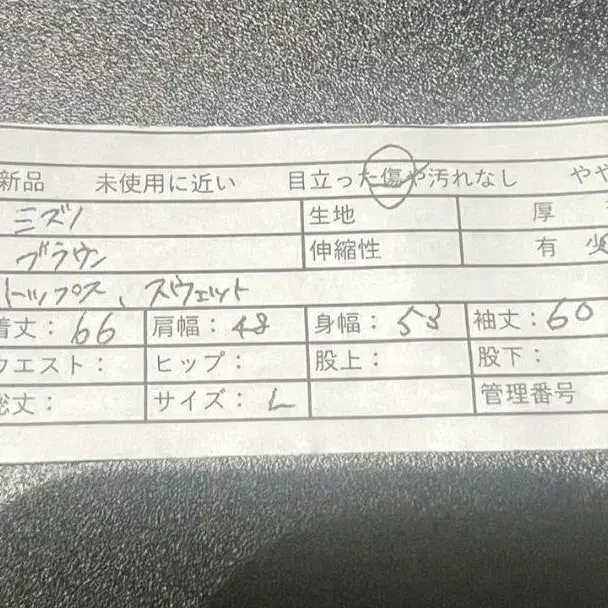 新品 未使用に近い 目立った傷や汚れなし やや
ミズノ 生地 厚
ブラウン 伸縮性 有 少
トップス、スウェット
着丈：66 肩幅：48 身幅：53 袖丈：60
ウエスト： ヒップ： 股上： 股下：
総丈： サイズ：L 管理番号